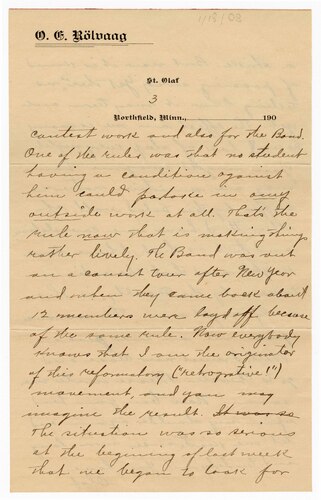 1/19/08
O. E. Rölvaag
St. Olaf
3
Northfield, Minn., 190
contest work and also for the Band.
One of the rules was that no student
having a condition against
him could patake in any
outside work at all. That's the
rule now that is making things
rather lively. The Band was out
on a consert tour after New Year
and when they came back about
12 members were layd off because
of the same rule. Now everybody
knows that I am the originator
of this reformatory ("retrogrative!")
movement, and you may
imagine the result. It was so
The situation was so serious
at the beginning of last week
that we began to look for